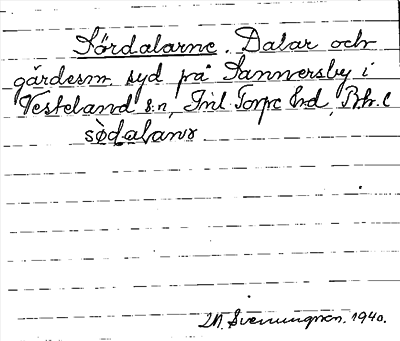 Sördalarne. Dalar och
gärdesm. syd på Sannersby i
Vesteland s:n, Inl Torpe hd, Bh. l
sødalanr
Svenungsson. 1940.